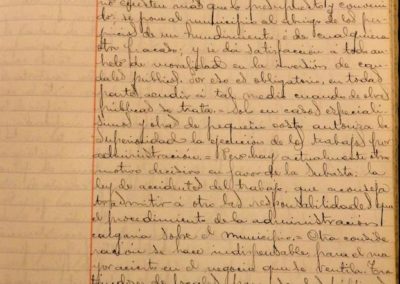 no cuesten mas que lo presupuesto y conveni-
do; se pone al municipio al abrigo de los per-
juicios de un rendimiento ó de cualquiera
otro fracaso; y se da satisfacción á todo an-
helo de moralidad en la inversión de cau-
dales públicos. Por eso es obligatorio, en todas
partes, acudir á tal medio cuando de obras
públicas se trata. = Solo en casos especiali-
simos y obras de pequeño coste autoriza la
Superioridad la ejecución de los trabajos por
administración. = Pero hay actualmente otro
motivo decisivo en favor de la subasta: la
ley de accidentes del trabajo, que aconseja
trasmitir á otro las responsabilidades que
el procedimiento de la administración
cargaria sobre el municipio. = Otra conside-
ración se hace indispensable para el ma-
yor acierto en el negocio que se ventila.